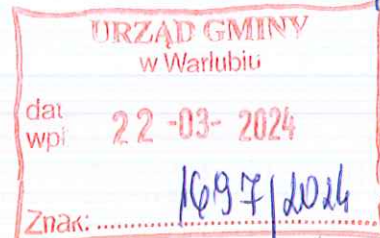 URZĄD GMINY
w Warlubiu
dat
wpł 22 -03- 2024
1697/2024
Znak: ..........